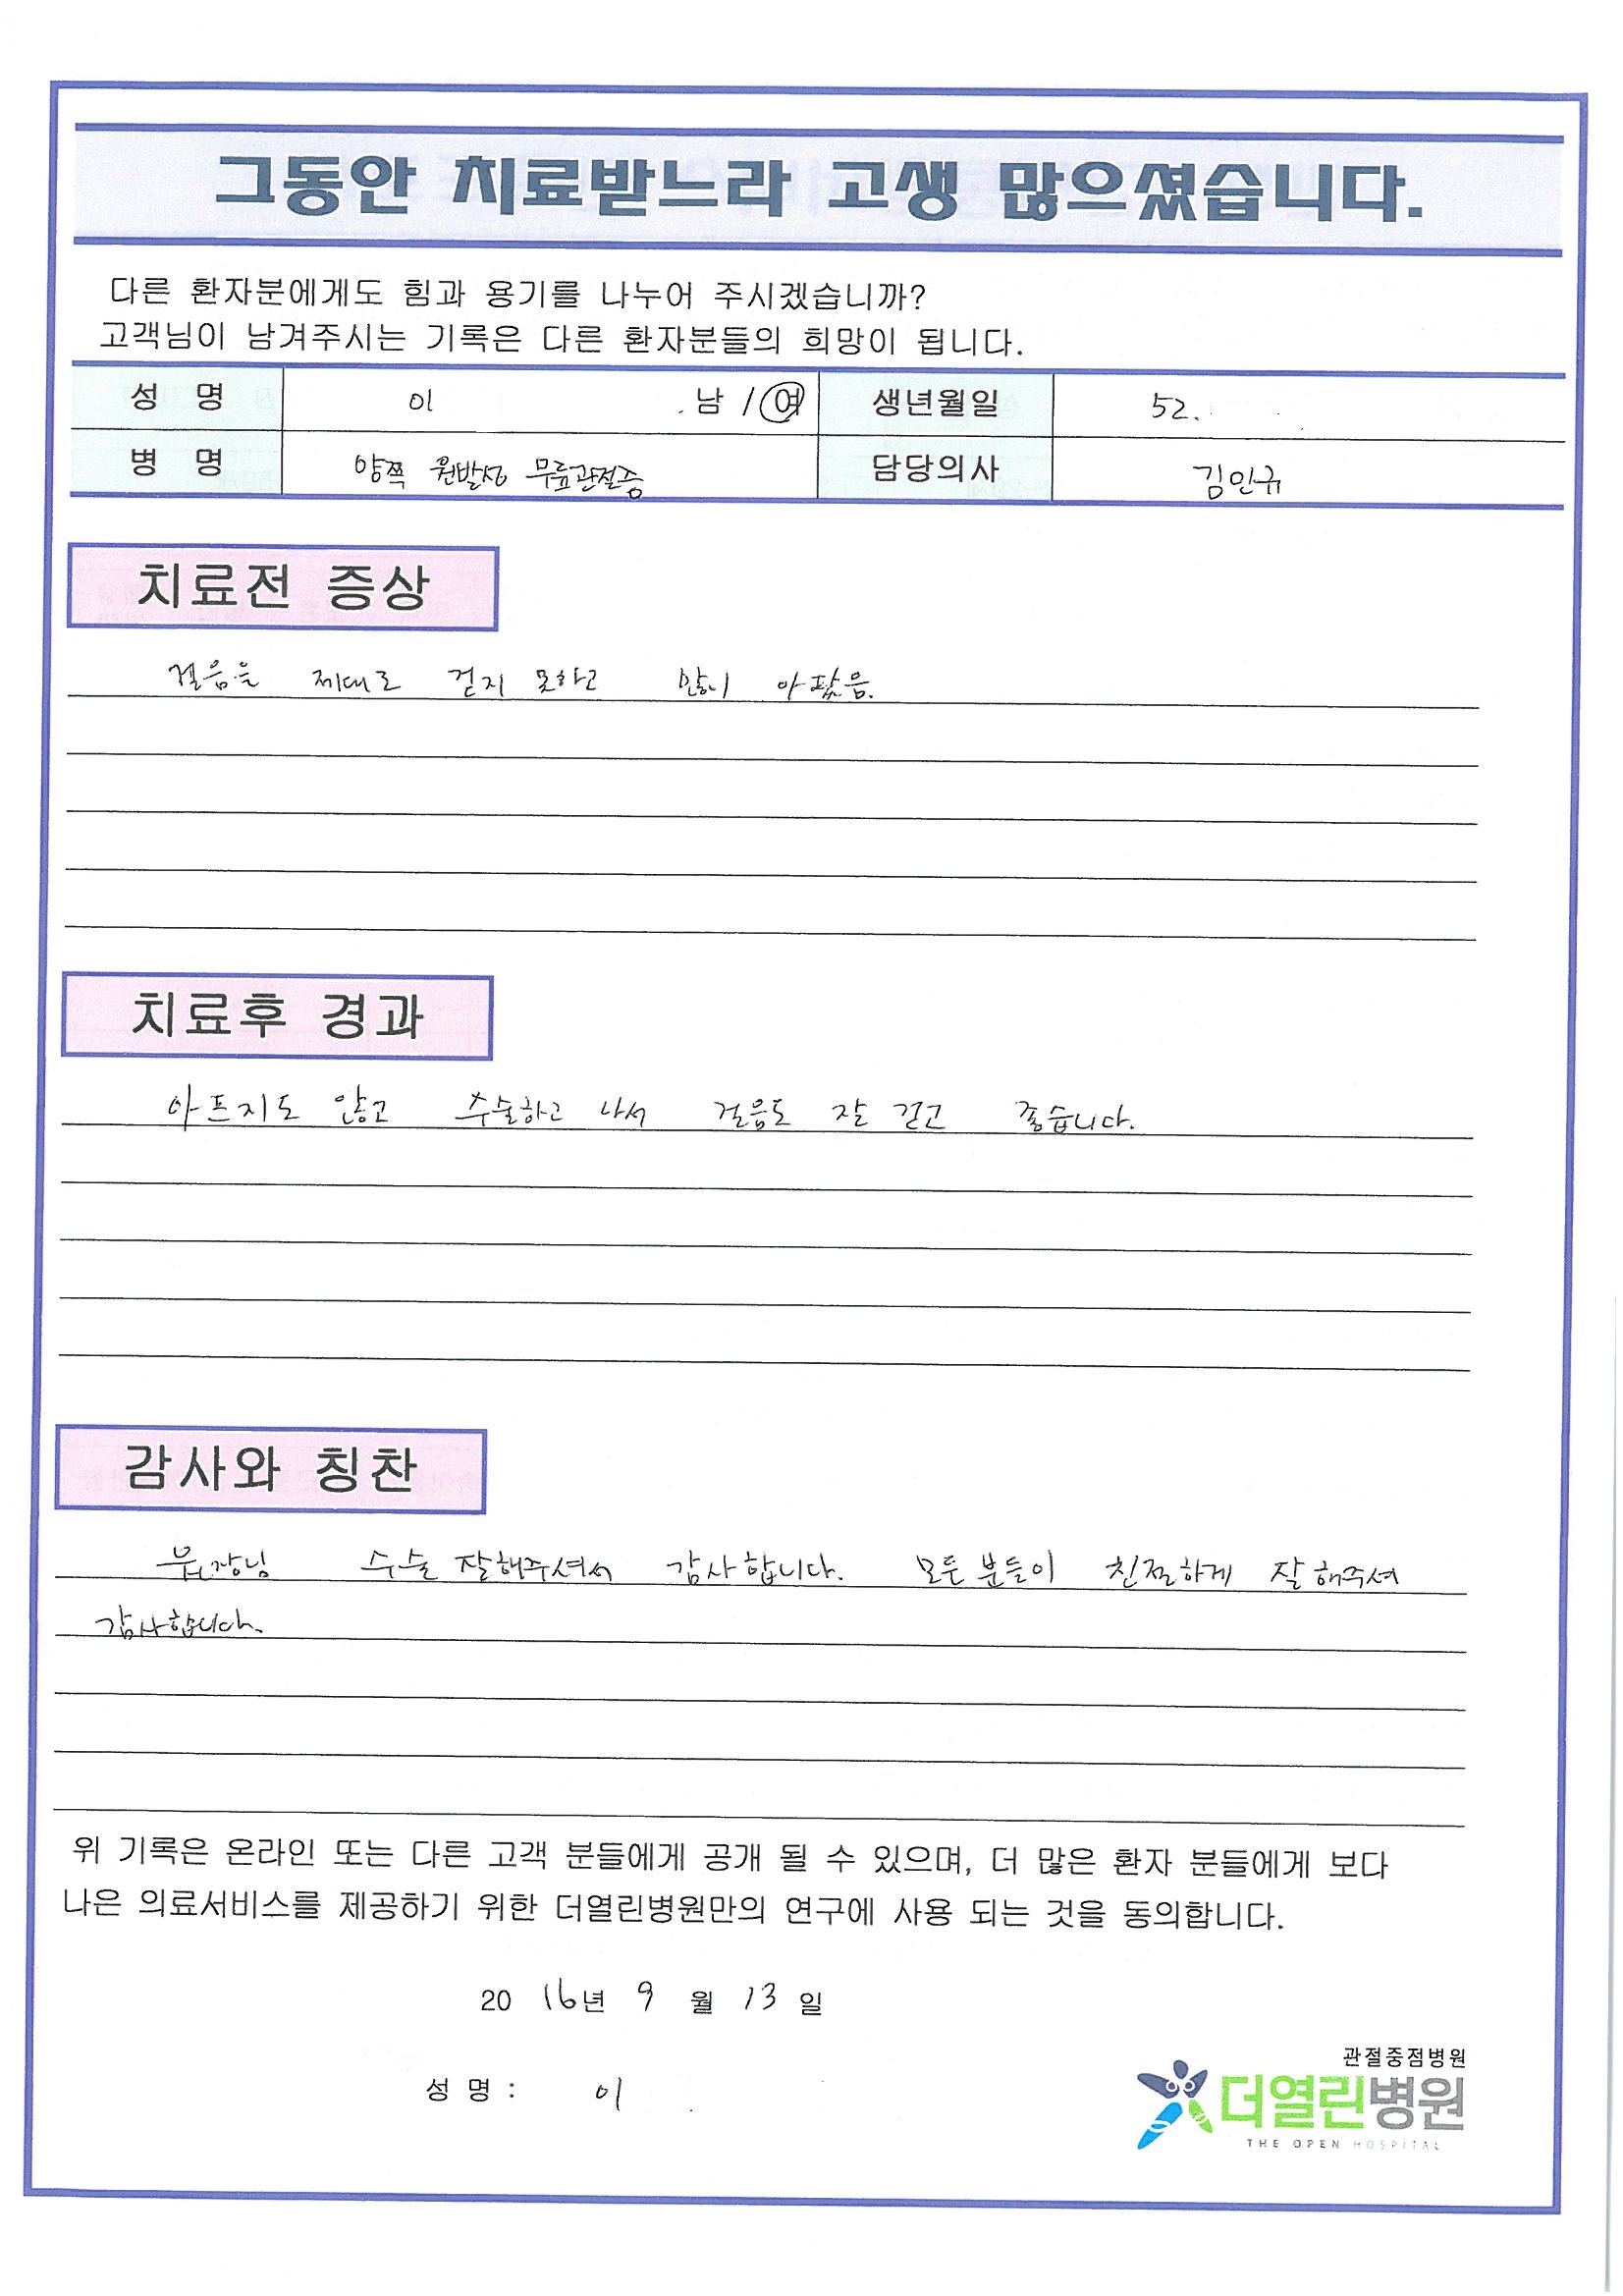 그동안 치료받느라 고생 많으셨습니다.
다른 환자분에게도 힘과 용기를 나누어 주시겠습니까?
고객님이 남겨주시는 기록은 다른 환자분들의 희망이 됩니다.
성 명 이 남 / 여 생년월일 52.
병 명 양쪽 원발성 무릎관절증 담당의사 김인규
치료전 증상
걸음을 제대로 걷지 못하고 많이 아팠음.
치료후 경과
아프지도 않고 수술하고 나서 걸음도 잘 걷고 좋습니다.
감사와 칭찬
수술 잘해주셔서 감사합니다. 모든 분들이 친절하게 잘 해주셔
감사합니다.
위 기록은 온라인 또는 다른 고객 분들에게 공개 될 수 있으며, 더 많은 환자 분들에게 보다
나은 의료서비스를 제공하기 위한 더열린병원만의 연구에 사용 되는 것을 동의합니다.
20 16년 9 월 13 일
성 명 : 이
관절중점병원
더열린병원
THE OPEN HOSPITAL